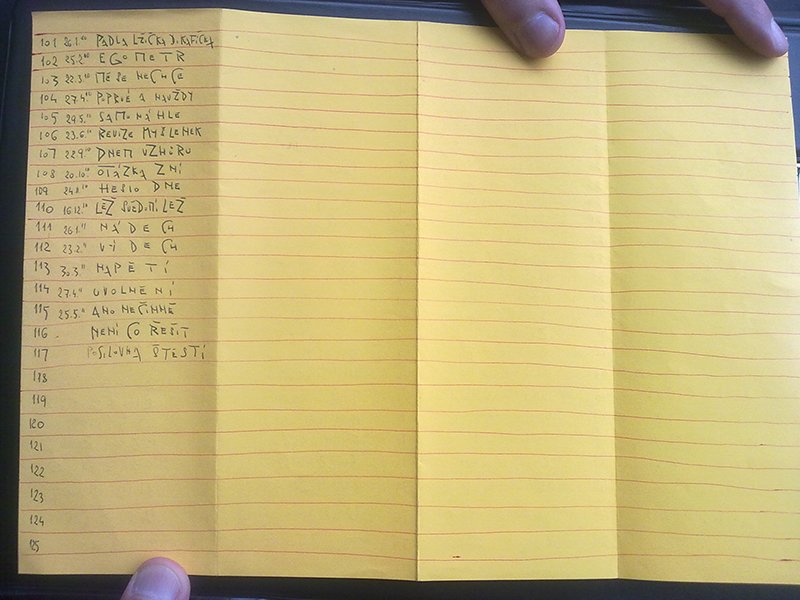 101 26.1.10 PADLA LŽIČKA DO KAFÍČKA
102 25.2.10 EGOMETR
103 22.3.10 MĚ SE NECHCE
104 27.4.10 POPRVÉ A NAVŽDY
105 29.5.10 SAMO NÁHLE
106 23.6.10 REVIZE MYŠLENEK
107 22.9.10 DNEM VZHŮRU
108 20.10.10 OTÁZKA ZNÍ
109 24.11.10 HESLO DNE
110 16.12.10 LEŽ SVĚDOMÍ LEŽ
111 26.1.11 NÁDECH
112 23.2.11 VÝDECH
113 30.3.11 NAPĚTÍ
114 27.4.11 UVOLNĚNÍ
115 25.5.11 ANO NEČINNĚ
116 NENÍ CO ŘEŠIT
117 POSILOVNA ŠTĚSTÍ
118
119
120
121
122
123
124
125